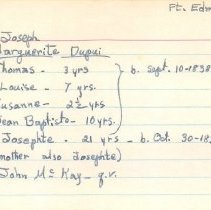 Ft. Edm
Joseph
Marguerite Dupui
Thomas - 3 yrs
Louise - 7 yrs.
Susanne - 2½ yrs.
Jean Baptiste - 10 yrs.
b. Sept. 10-1838
Josephte - 21 yrs - b. Oct. 30-18
(mother also Josephte)
John Mc Kay - q.v.